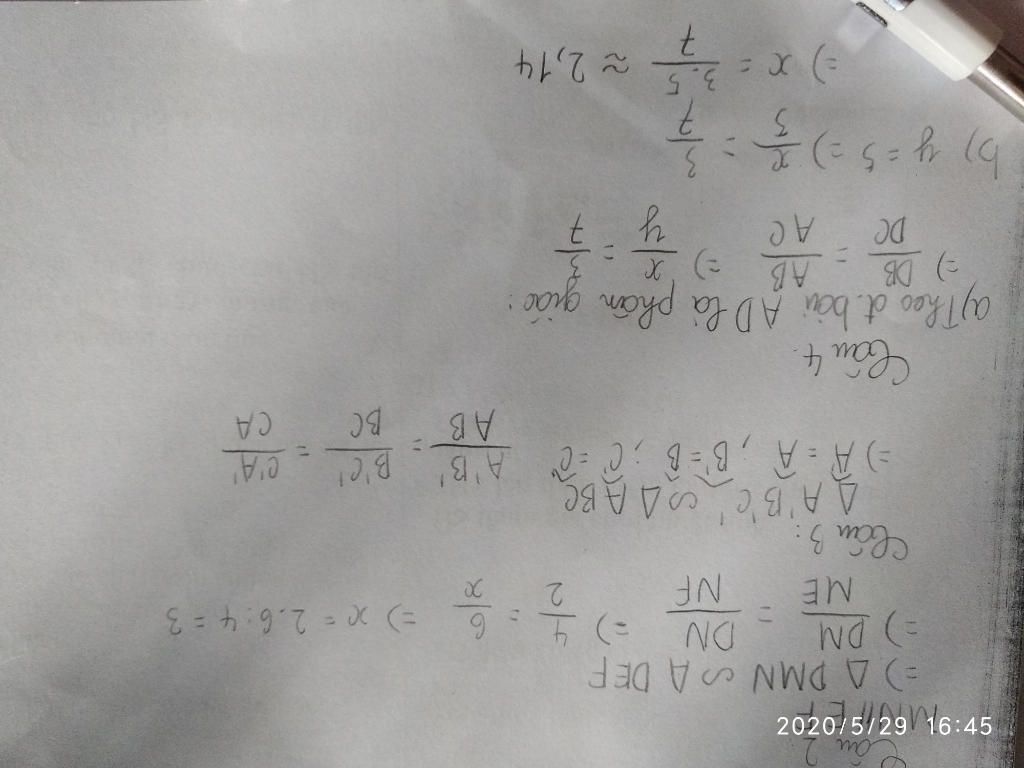 Câu 2:
MN//EF
=) Δ DMN ∽ Δ DEF
=) DM/ME = DN/NF =) 4/2 = 6/x =) x = 2.6:4 = 3
Câu 3:
Δ A'B'C' ∽ Δ ABC
=) Â' = Â, B̂' = B̂; Ĉ' = Ĉ A'B'/AB = B'C'/BC = C'A'/CA
Câu 4.
a) Theo đ.bài AD là phân giác:
=) DB/DC = AB/AC =) x/y = 3/7
b) y = 5 =) x/5 = 3/7
=) x = 3.5/7 ≈ 2,14
2020/5/29 16:45